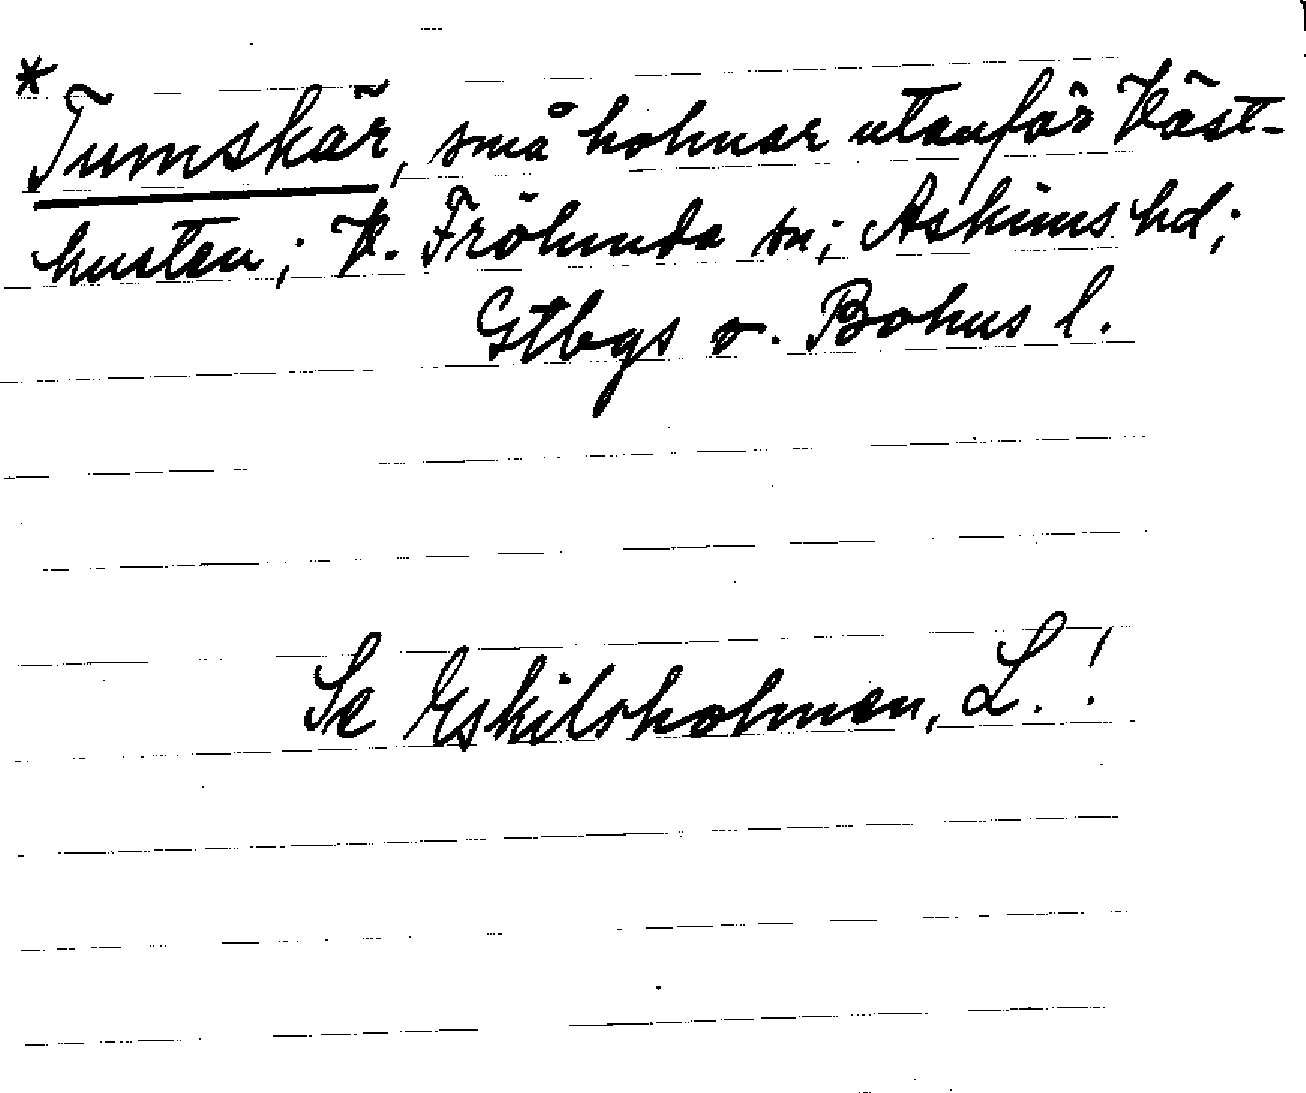 *
Tumskär, små holmar utanför Väst-
kusten; V. Frölunda sn; Askims hd;
Gtbgs o. Bohus l.
Se Eskilsholmen, L.!